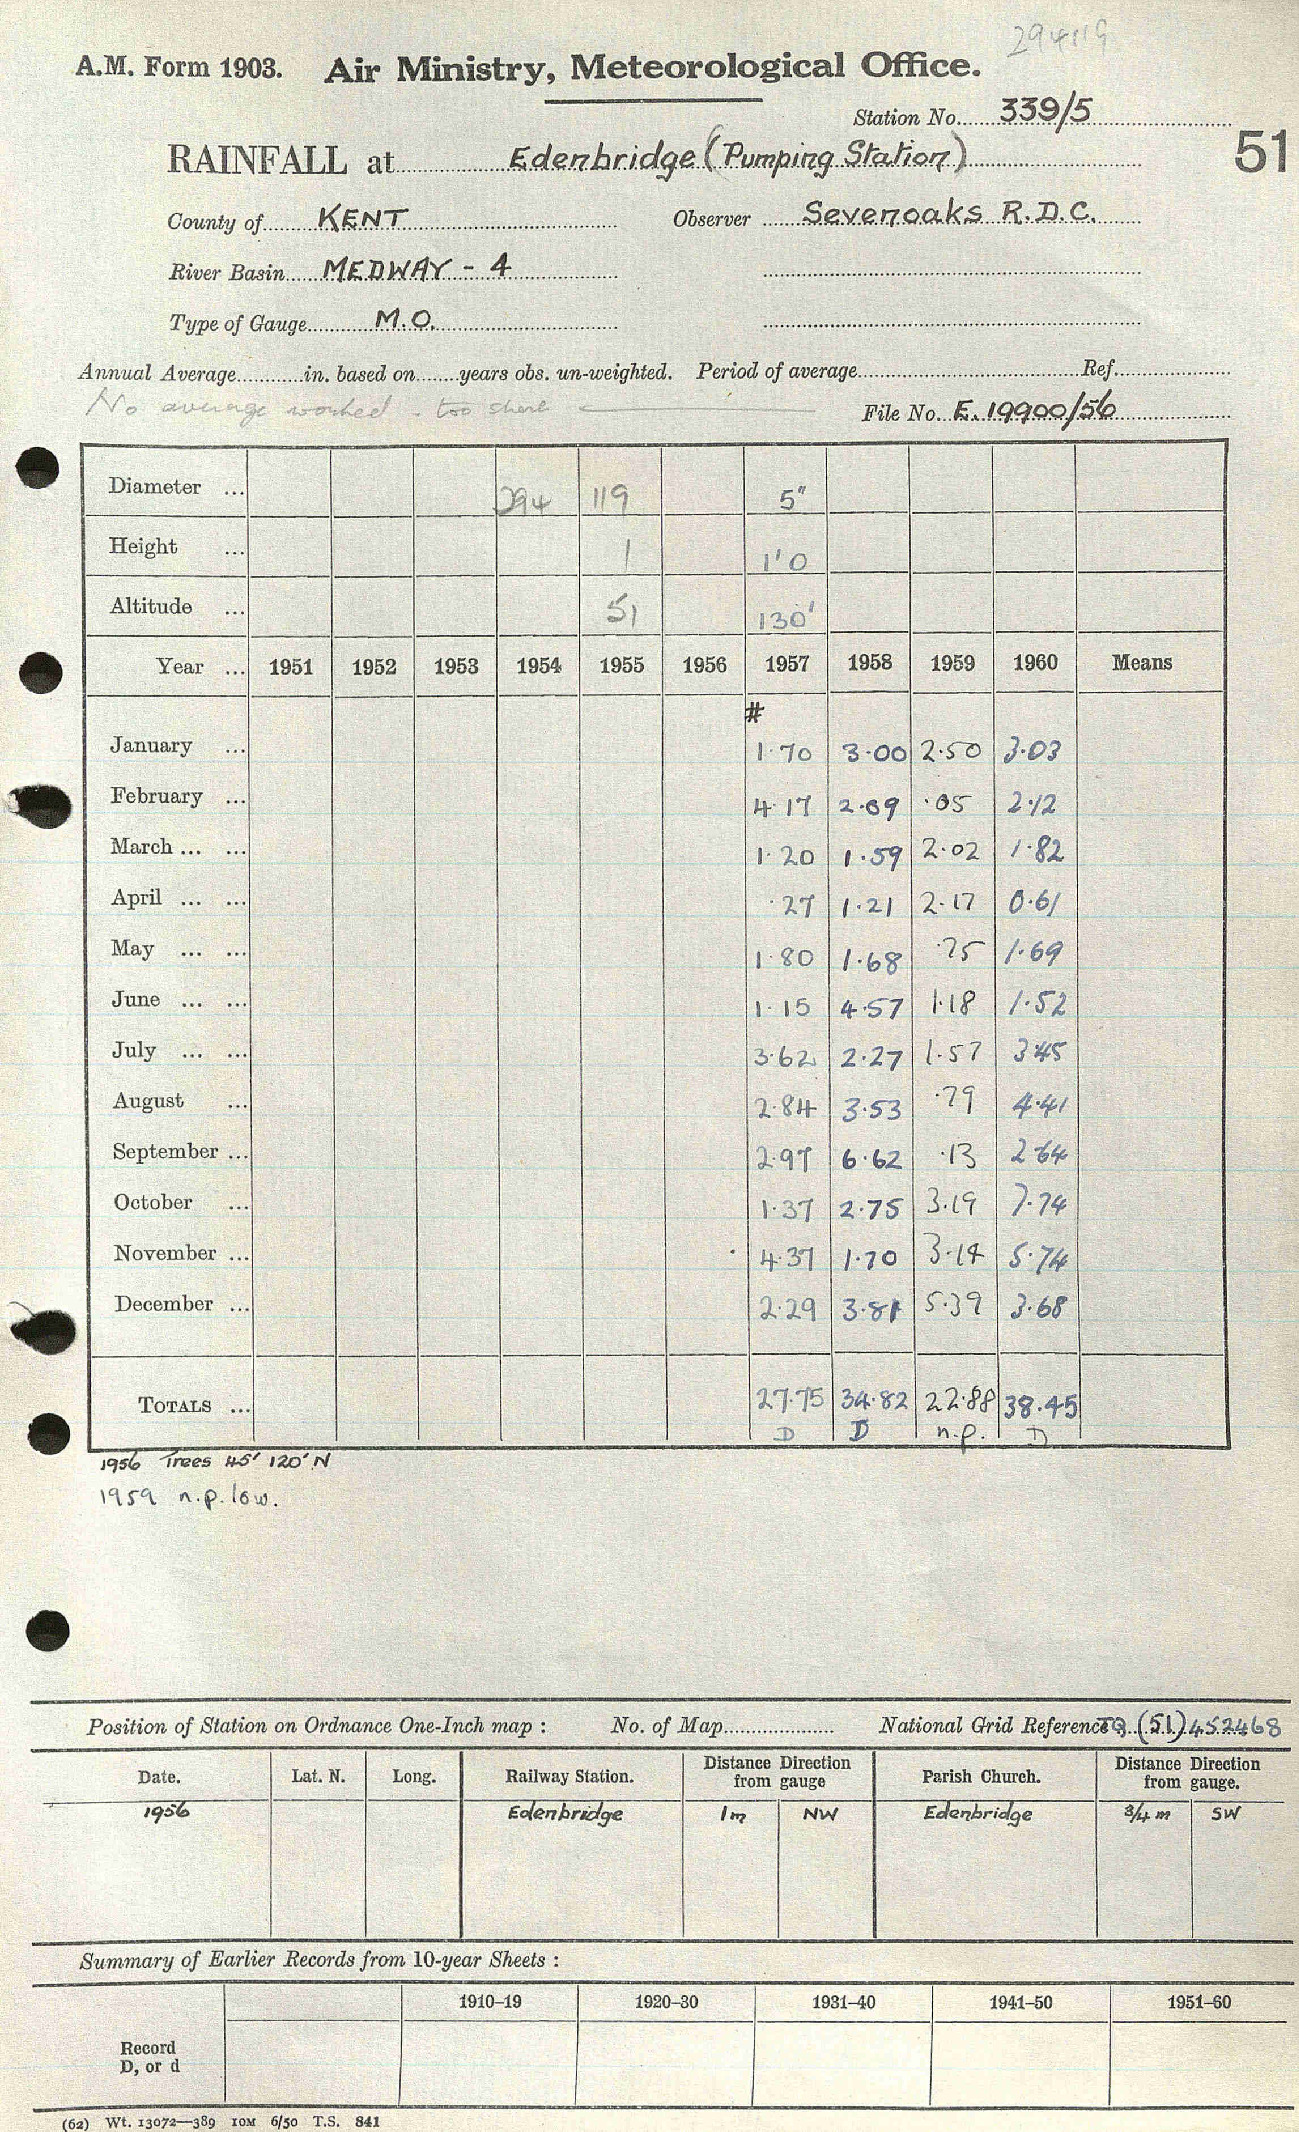 294119
A.M. Form 1903. Air Ministry, Meteorological Office.
Station No. 339/5
51
RAINFALL at Edenbridge (Pumping Station)
County of KENT Observer Sevenoaks R.D.C.
River Basin MEDWAY - 4
Type of Gauge M.O.
Annual Average in. based on years obs. un-weighted. Period of average Ref.
No average worked - too short
File No. E. 19900/56
Diameter ... 294 119 5"
Height ... 1 1'0
Altitude ... 51 130'
Year ... 1951 1952 1953 1954 1955 1956 1957 1958 1959 1960 Means
#
January ... 1.70 3.00 2.50 3.03
February ... 4.17 2.09 .05 2.12
March ... ... 1.20 1.59 2.02 1.82
April ... ... .27 1.21 2.17 0.61
May ... ... 1.80 1.68 .75 1.69
June ... ... 1.15 4.57 1.18 1.52
July ... ... 3.62 2.27 1.57 3.45
August ... 2.84 3.53 .79 4.41
September ... 2.97 6.62 .13 2.64
October ... 1.37 2.75 3.19 7.74
November ... 4.37 1.70 3.14 5.74
December ... 2.29 3.81 5.39 3.68
TOTALS ... 27.75 34.82 22.88 38.45
D D n.p. D
1956 Trees 45' 120' N
1959 n.p. low.
Position of Station on Ordnance One-Inch map : No. of Map National Grid Reference TQ (51) 452468
Date. Lat. N. Long. Railway Station. Distance Direction from gauge Parish Church. Distance Direction from gauge.
1956 Edenbridge 1m NW Edenbridge 3/4 m SW
Summary of Earlier Records from 10-year Sheets :
1910–19 1920–30 1931–40 1941–50 1951–60
Record
D, or d
(62) Wt. 13072—389 10M 6/50 T.S. 841